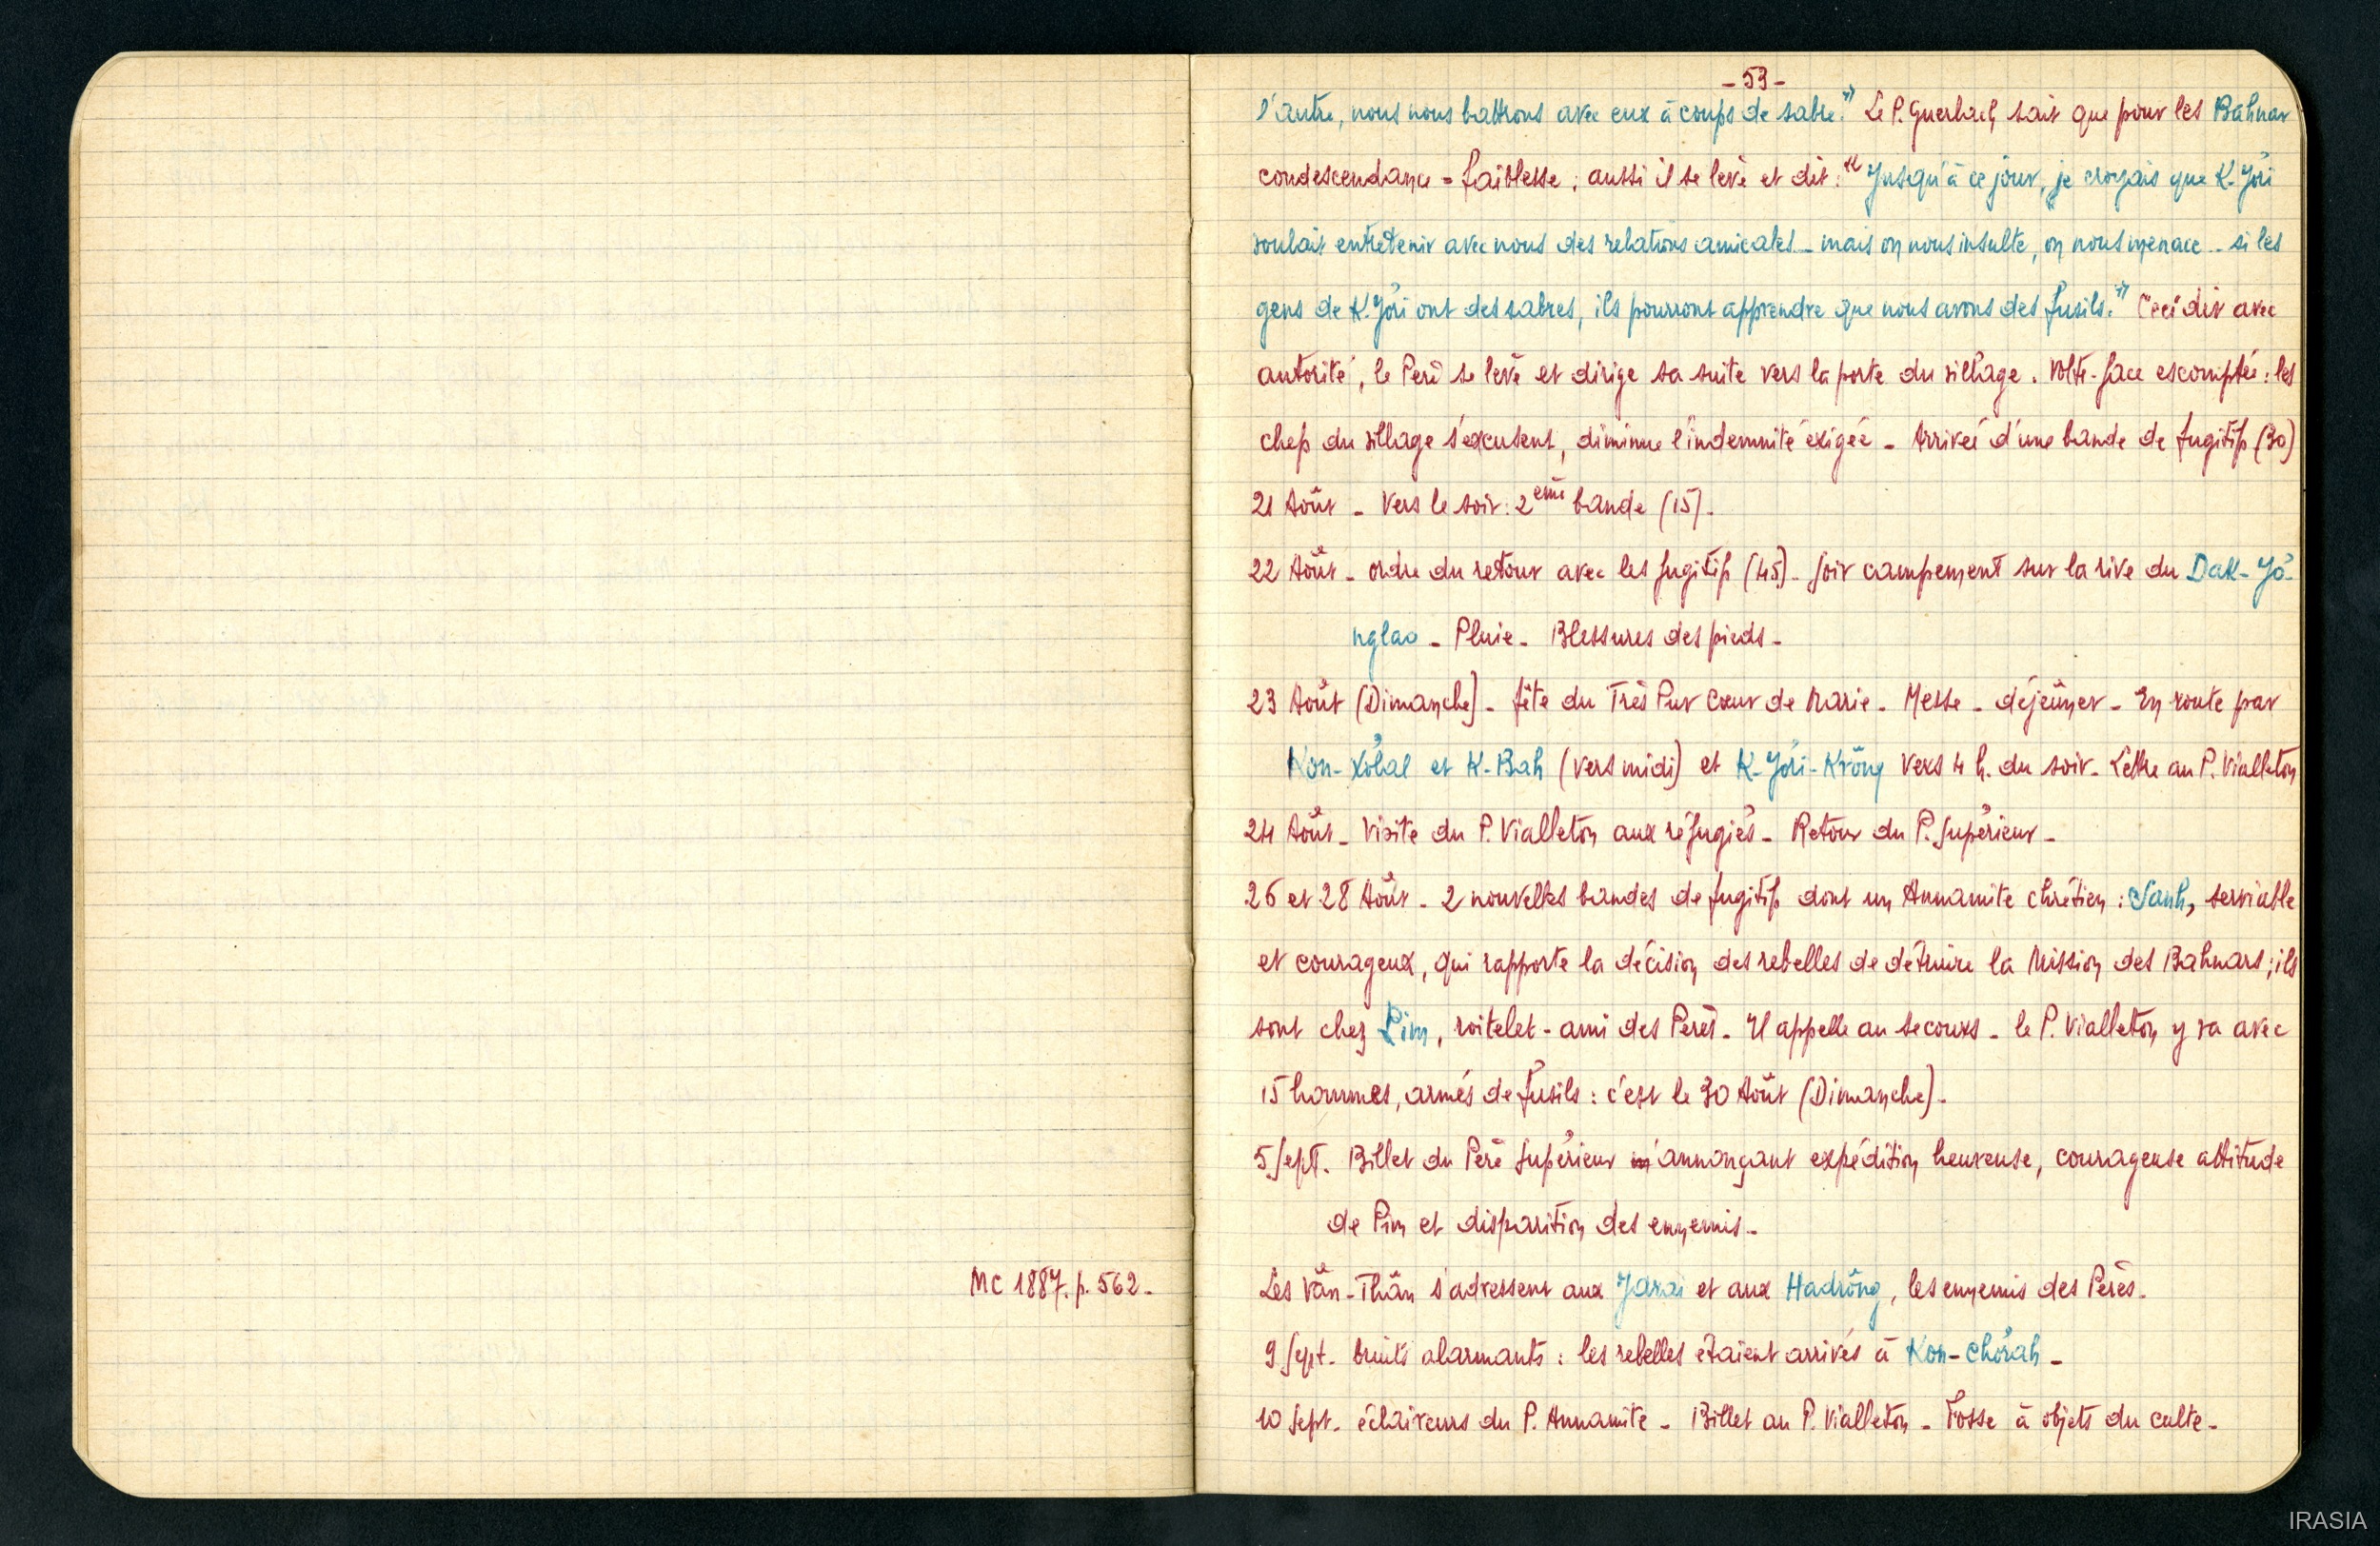 MC 1887. p. 562 -
- 53 -
l'autre, nous nous battrons avec eux à coups de sabre." Le P. Guerlach sait que pour les Bahnar
condescendance = faiblesse ; aussi il se lève et dit : "Jusqu'à ce jour, je croyais que K. Jơri
voulait entretenir avec nous des relations amicales - mais on nous insulte, on nous menace .. si les
gens de K. Jơri ont des sabres, ils pourront apprendre que nous avons des fusils." Ceci dit avec
autorité, le Père se lève et dirige sa suite vers la porte du village. Volte-face escomptée : les
chefs du village s'excusent, diminue l'indemnité exigée - Arrivée d'une bande de fugitifs (30)
21 Août - Vers le soir : 2ème bande (15).
22 Août - ordre du retour avec les fugitifs (45) - Soir campement sur la rive du Dak-Jơ-
nglao - Pluie - Blessures des pieds -
23 Août (Dimanche) - fête du Très Pur Cœur de Marie - Messe - déjeûner - En route par
Kon-Xơbal et K-Bah (vers midi) et K-Jơri-Krŏng vers 4 h. du soir - Lettre au P. Vialleton
24 Août - Visite du P. Vialleton aux réfugiés - Retour du P. Supérieur -
26 et 28 Août - 2 nouvelles bandes de fugitifs dont un Annamite chrétien : Sanh, serviable
et courageux, qui rapporte la décision des rebelles de détruire la Mission des Bahnars ; ils
sont chez Pim, roitelet - ami des Pères - Il appelle au secours - le P. Vialleton y va avec
15 hommes, armés de fusils : c'est le 30 Août (Dimanche) -
5 Sept. Billet du Père Supérieur m'annonçant expédition heureuse, courageuse attitude
de Pim et disparition des ennemis -
Les Văn-Thân s'adressent aux Jarai et aux Hadrŏng, les ennemis des Pères -
9 Sept - bruits alarmants : les rebelles étaient arrivés à Kon-Chơrah -
10 Sept - éclaireurs du P. Annamite - Billet au P. Vialleton - Fosse à objets du culte -
IRASIA